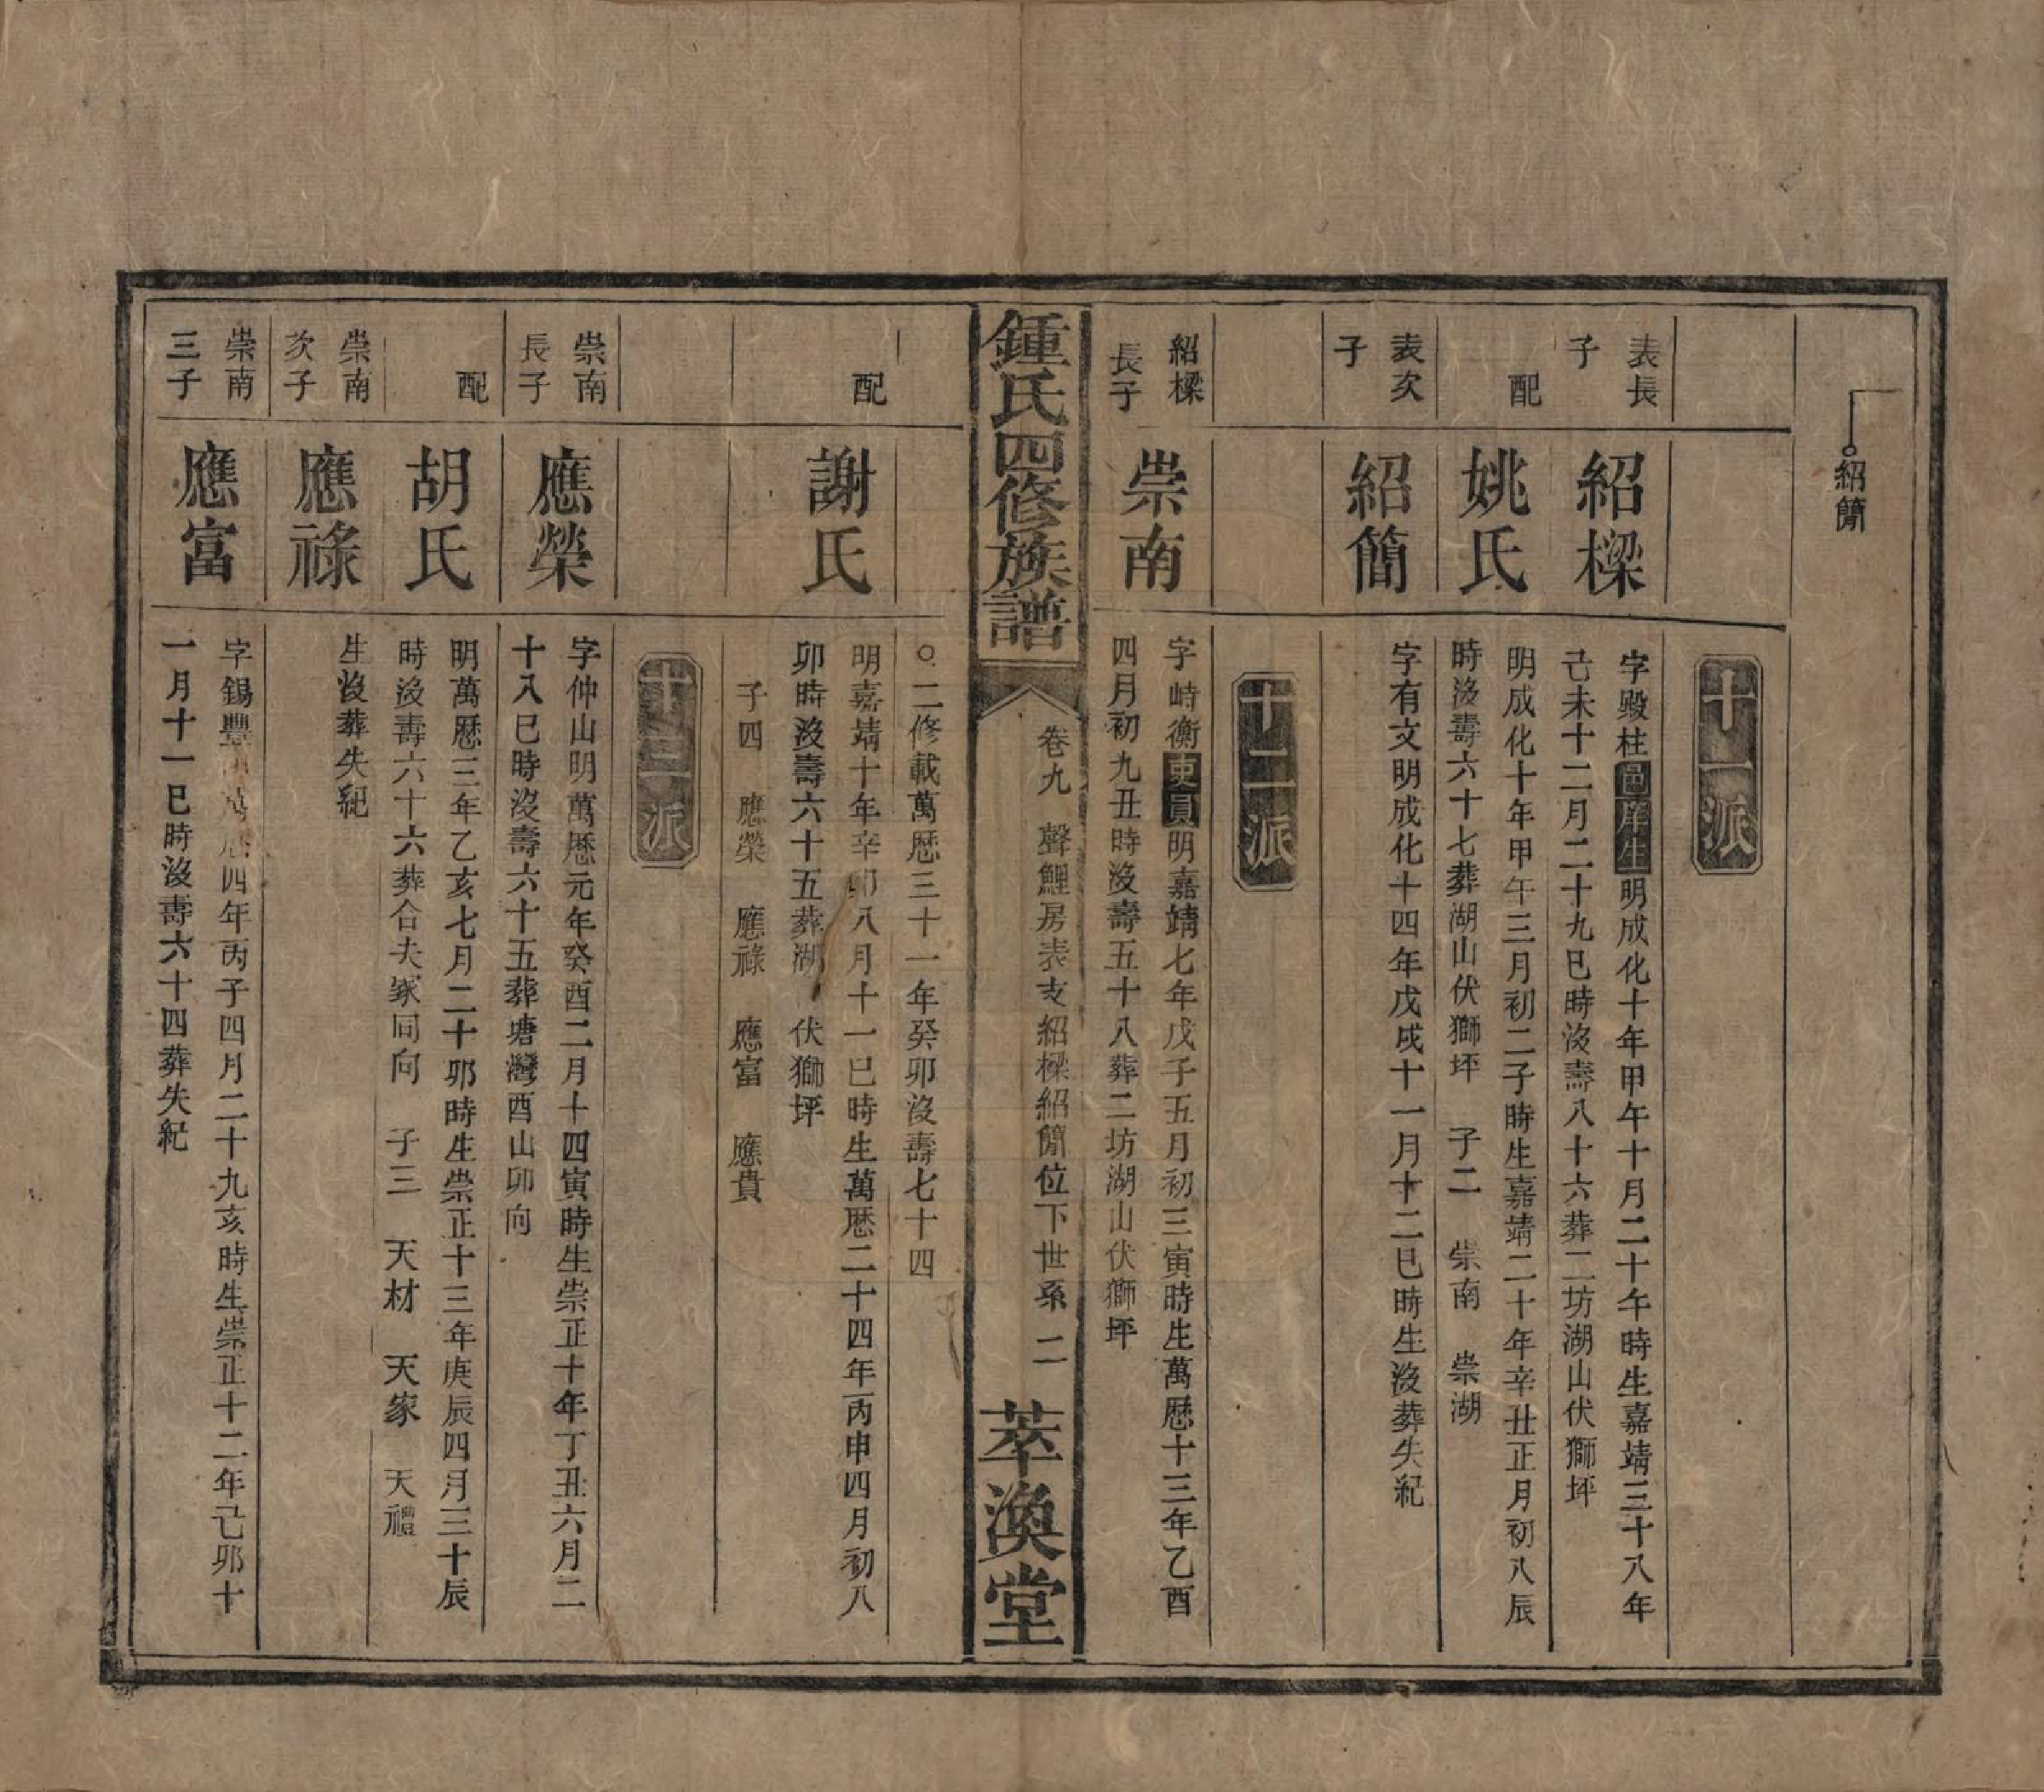 紹簡
十一派
表長子
紹樑
字殿柱邑庠生明成化十年甲午十月二十午時生嘉靖三十八年
己未十二月二十九巳時沒壽八十六葬二坊湖山伏獅坪
配
姚氏
明成化十年甲午三月初二子時生嘉靖二十年辛丑正月初八辰
時沒壽六十七葬湖山伏獅坪 子二 崇南 崇湖
表次子
紹簡
字有文明成化十四年戊戌十一月十二巳時生沒葬失紀
十二派
紹樑長子
崇南
字峙衡吏員明嘉靖七年戊子五月初三寅時生萬厯十三年乙酉
四月初九丑時沒壽五十八葬二坊湖山伏獅坪
鍾氏四修族譜
卷九 聲鯉房表支紹樑紹簡位下世系 二
萃渙堂
○二修載萬厯三十一年癸卯沒壽七十四
配
謝氏
明嘉靖十年辛卯八月十一巳時生萬厯二十四年丙申四月初八
卯時沒壽六十五葬湖 伏獅坪
子四 應榮 應祿 應富 應貴
十三派
崇南長子
應榮
字仲山明萬厯元年癸酉二月十四寅時生崇正十年丁丑六月二
十八巳時沒壽六十五葬塘灣酉山卯向
配
胡氏
明萬厯三年乙亥七月二十卯時生崇正十三年庚辰四月三十辰
時沒壽六十六葬合夫冢同向 子三 天材 天家 天禮
崇南次子
應祿
生沒葬失紀
崇南三子
應富
字錫豐明萬厯四年丙子四月二十九亥時生崇正十二年己卯十
一月十一巳時沒壽六十四葬失紀